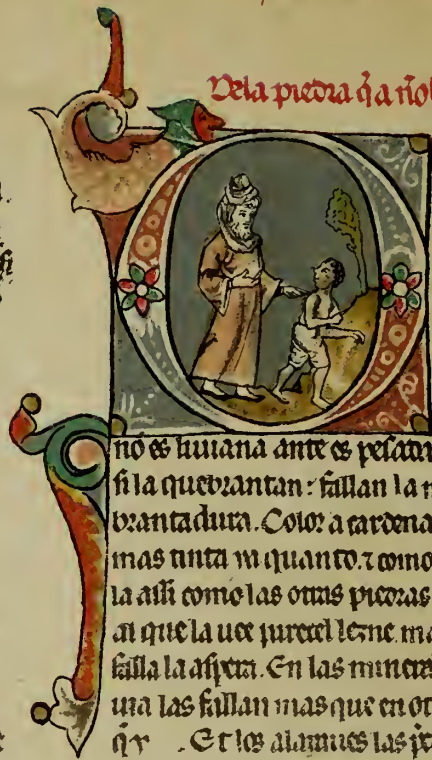 Dela piedra q̃ a nõb
no es liuiana ante es pesada
si la quebrantan: fallan la
brantadura. Color a cardena
mas tinta ya quanto. ⁊ como
la assi como las otras piedras
al que la uee parecel lezne. ma
falla la aspera. En las mineras
uia las fallan mas que en ot
Et los alaraues las